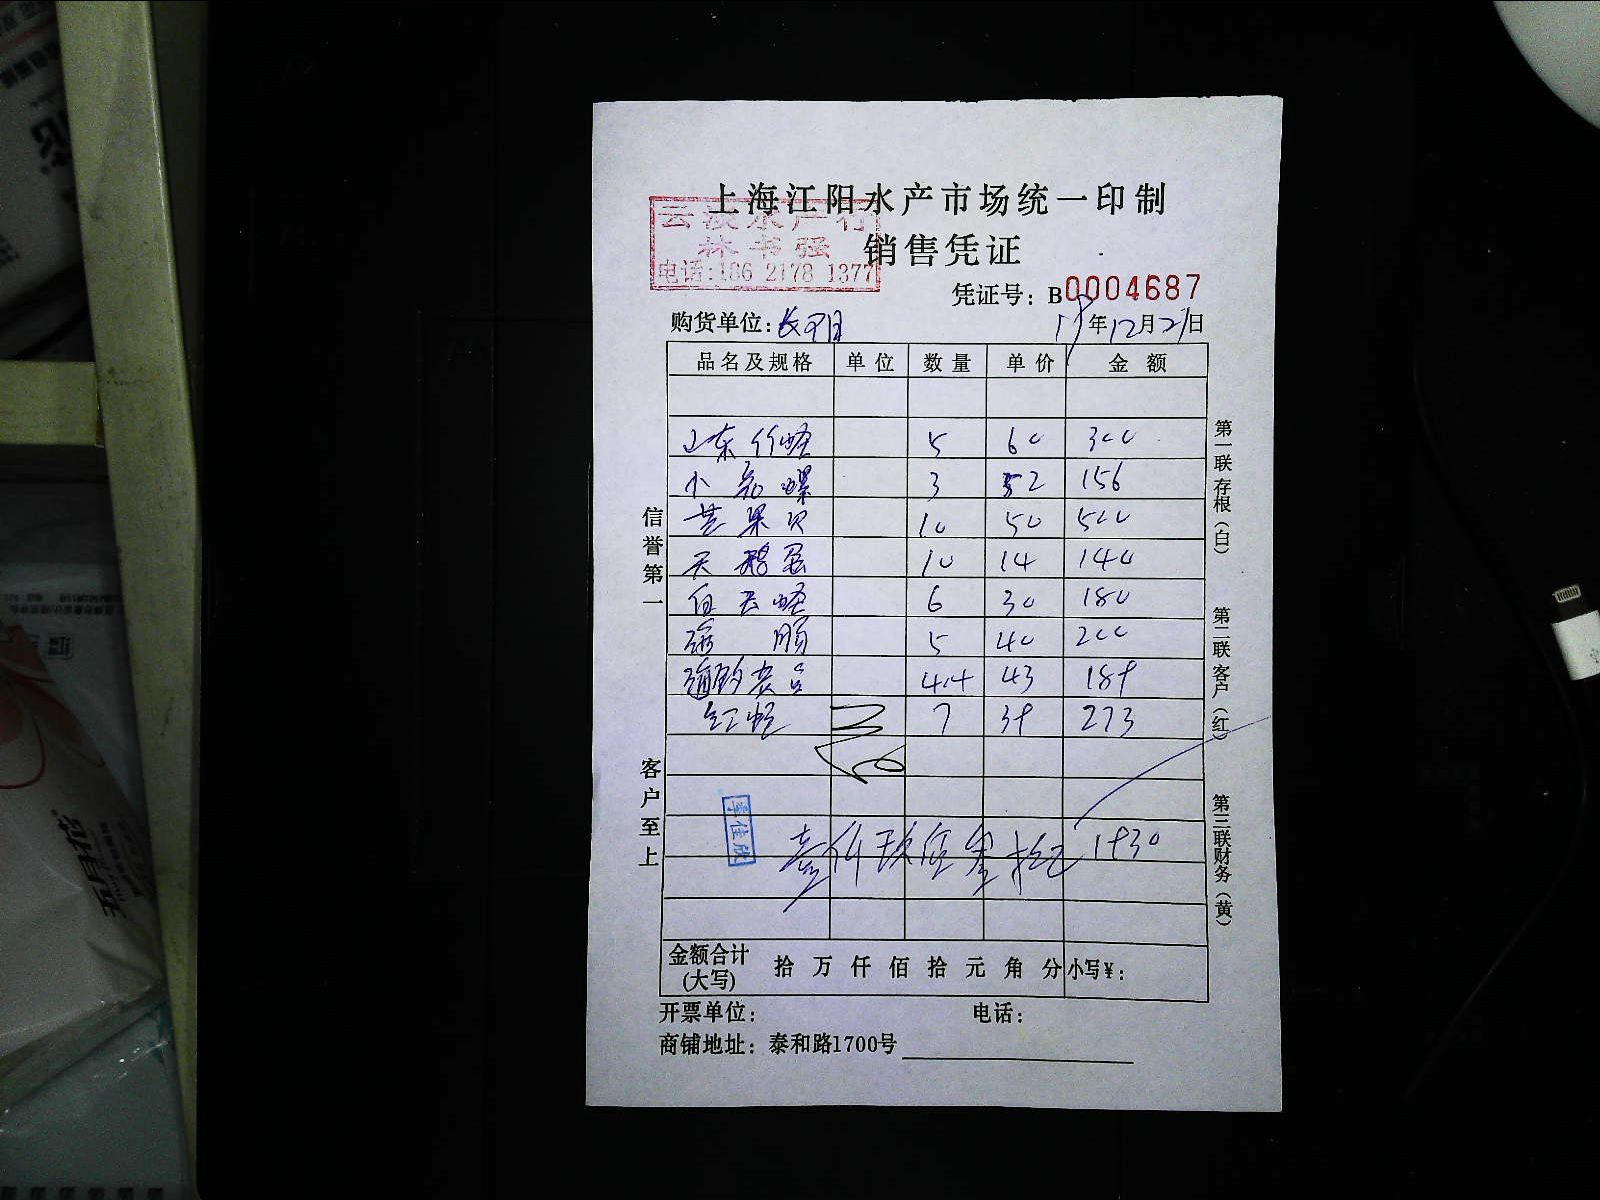 上海江阳水产市场统一印制
云淡水产行
林书强
电话:186 2178 1377
销售凭证
凭证号: B0004687
购货单位:
19年12月21日
品名及规格 单位 数量 单价 金额
山东竹蛏 5 60 300
小花螺 3 52 156
苹果贝 10 50 500
天鹅蛋 10 14 140
白云蛏 6 30 180
5 40 200
4.4 43 189
红蛏 7 39 273
李佳欣
壹仟玖佰叁拾元 1930
金额合计(大写) 拾 万 仟 佰 拾 元 角 分 小写¥:
开票单位: 电话:
商铺地址: 泰和路1700号
信誉第一
客户至上
第一联 存根(白)
第二联 客户(红)
第三联 财务(黄)